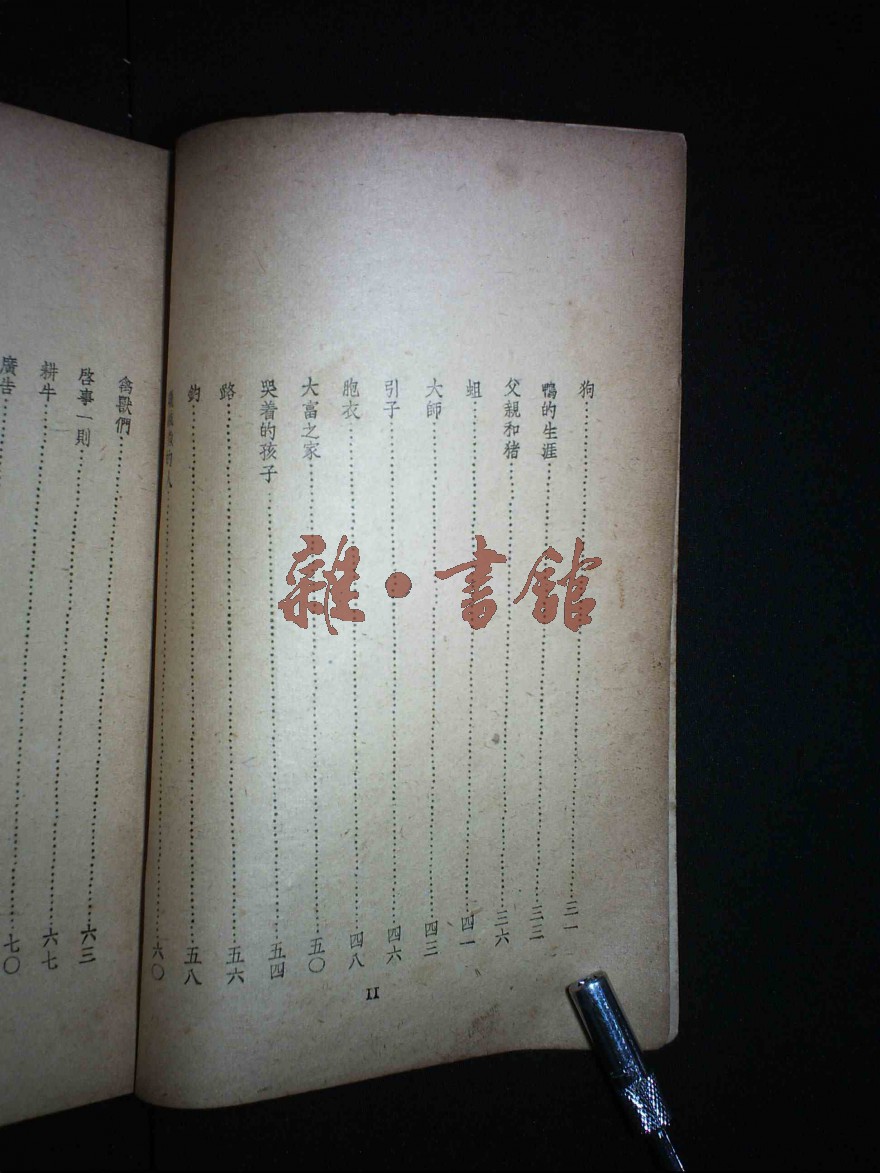 狗……三一
鴨的生涯……三三
父親和猪……三六
蛆……四一
大師……四三
引子……四六
胞衣……四八
大富之家……五〇
哭着的孩子……五四
路……五六
鈎……五八
的人……六〇
II
禽獸們
啓事一則……六三
耕牛……六七
廣告……七〇
雜·書館